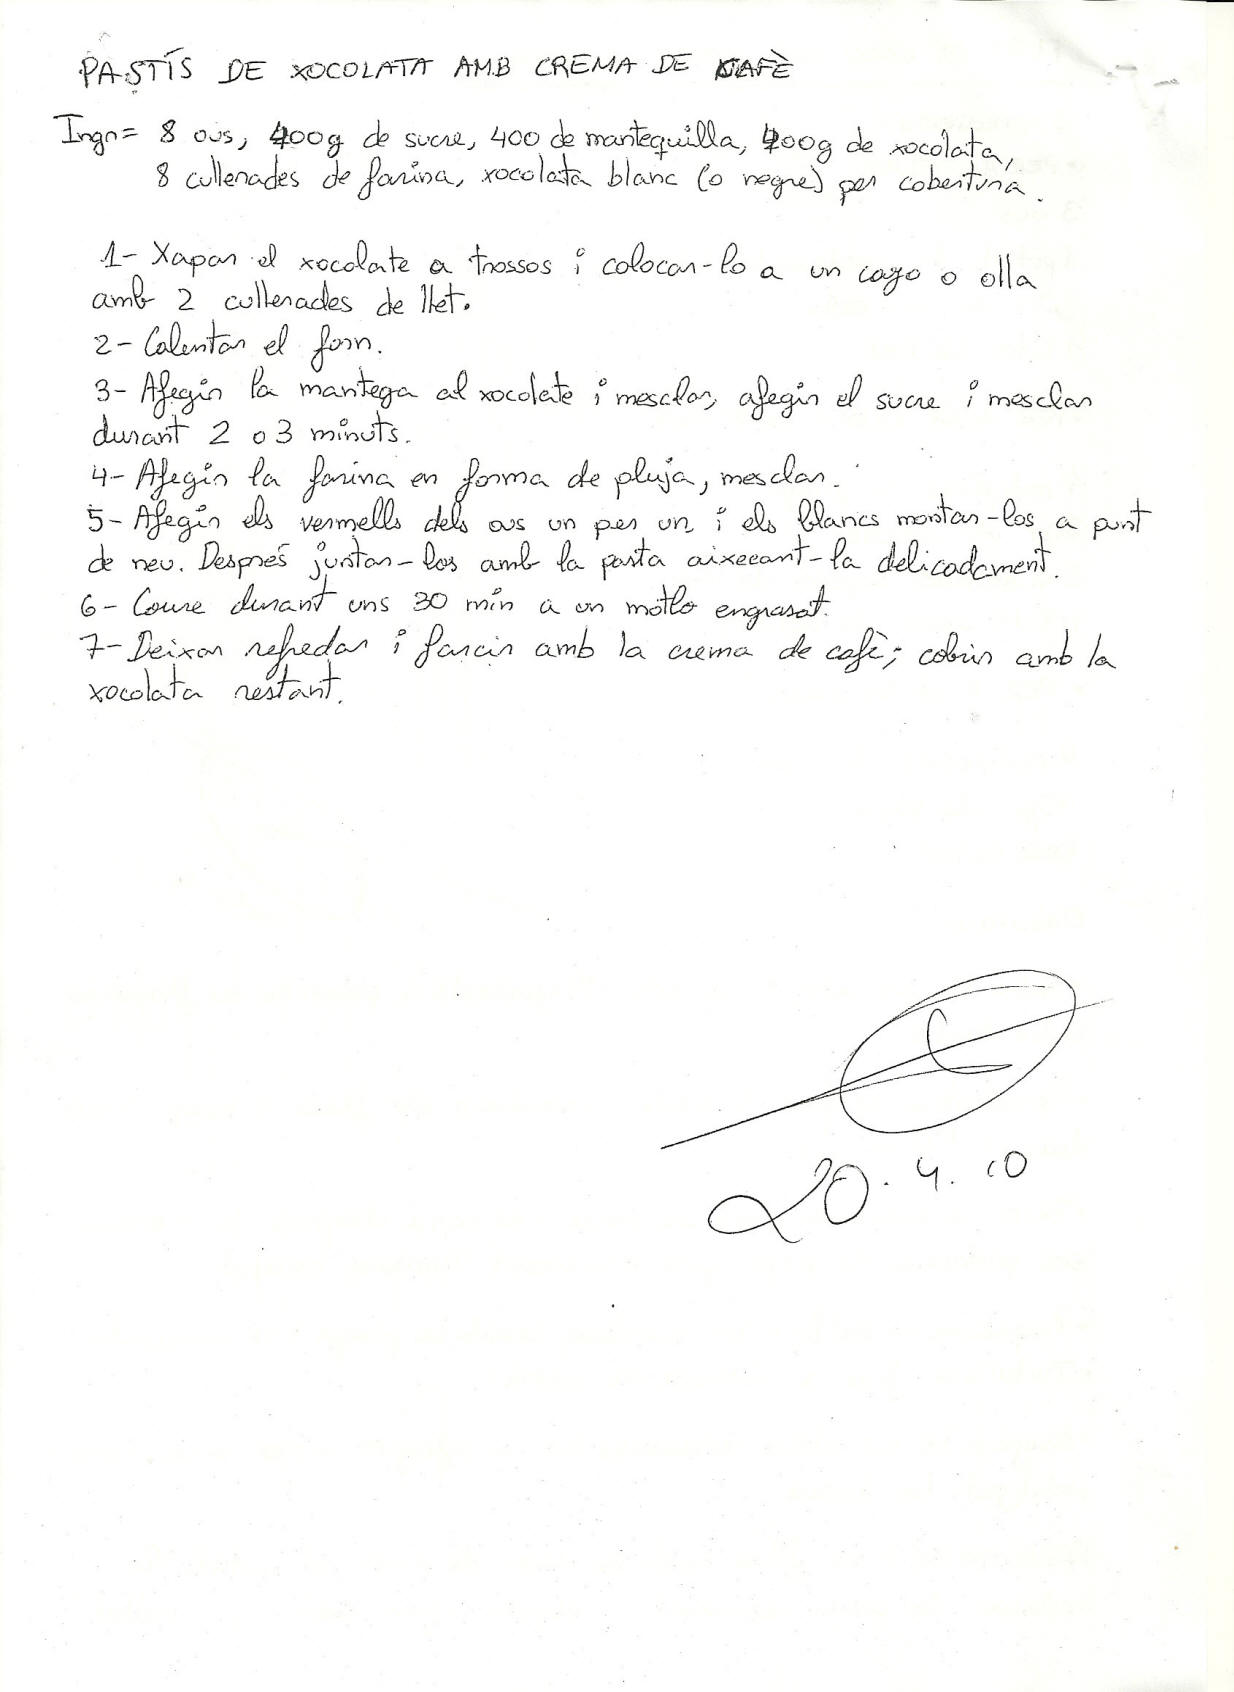 PASTÍS DE XOCOLATA AMB CREMA DE CAFÈ
Ingr= 8 ous, 400g de sucre, 400 de mantequilla, 400g de xocolata,
8 cullerades de farina, xocolata blanc (o negre) per cobertura.
1- Xapar el xocolate a trossos i colocar-lo a un caço o olla
amb 2 cullerades de llet.
2- Calentar el forn.
3- Afegir la mantega al xocolate i mesclar, afegir el sucre i mesclar
durant 2 o 3 minuts.
4- Afegir la farina en forma de pluja, mesclar.
5- Afegir els vermells dels ous un per un, i els blancs montar-los a punt
de neu. Després juntar-los amb la pasta aixecant-la delicadament.
6- Coure durant uns 30 min a un motlo engrasat.
7- Deixar refredar i farcir amb la crema de cafè; cobrir amb la
xocolata restant.
20.4.10